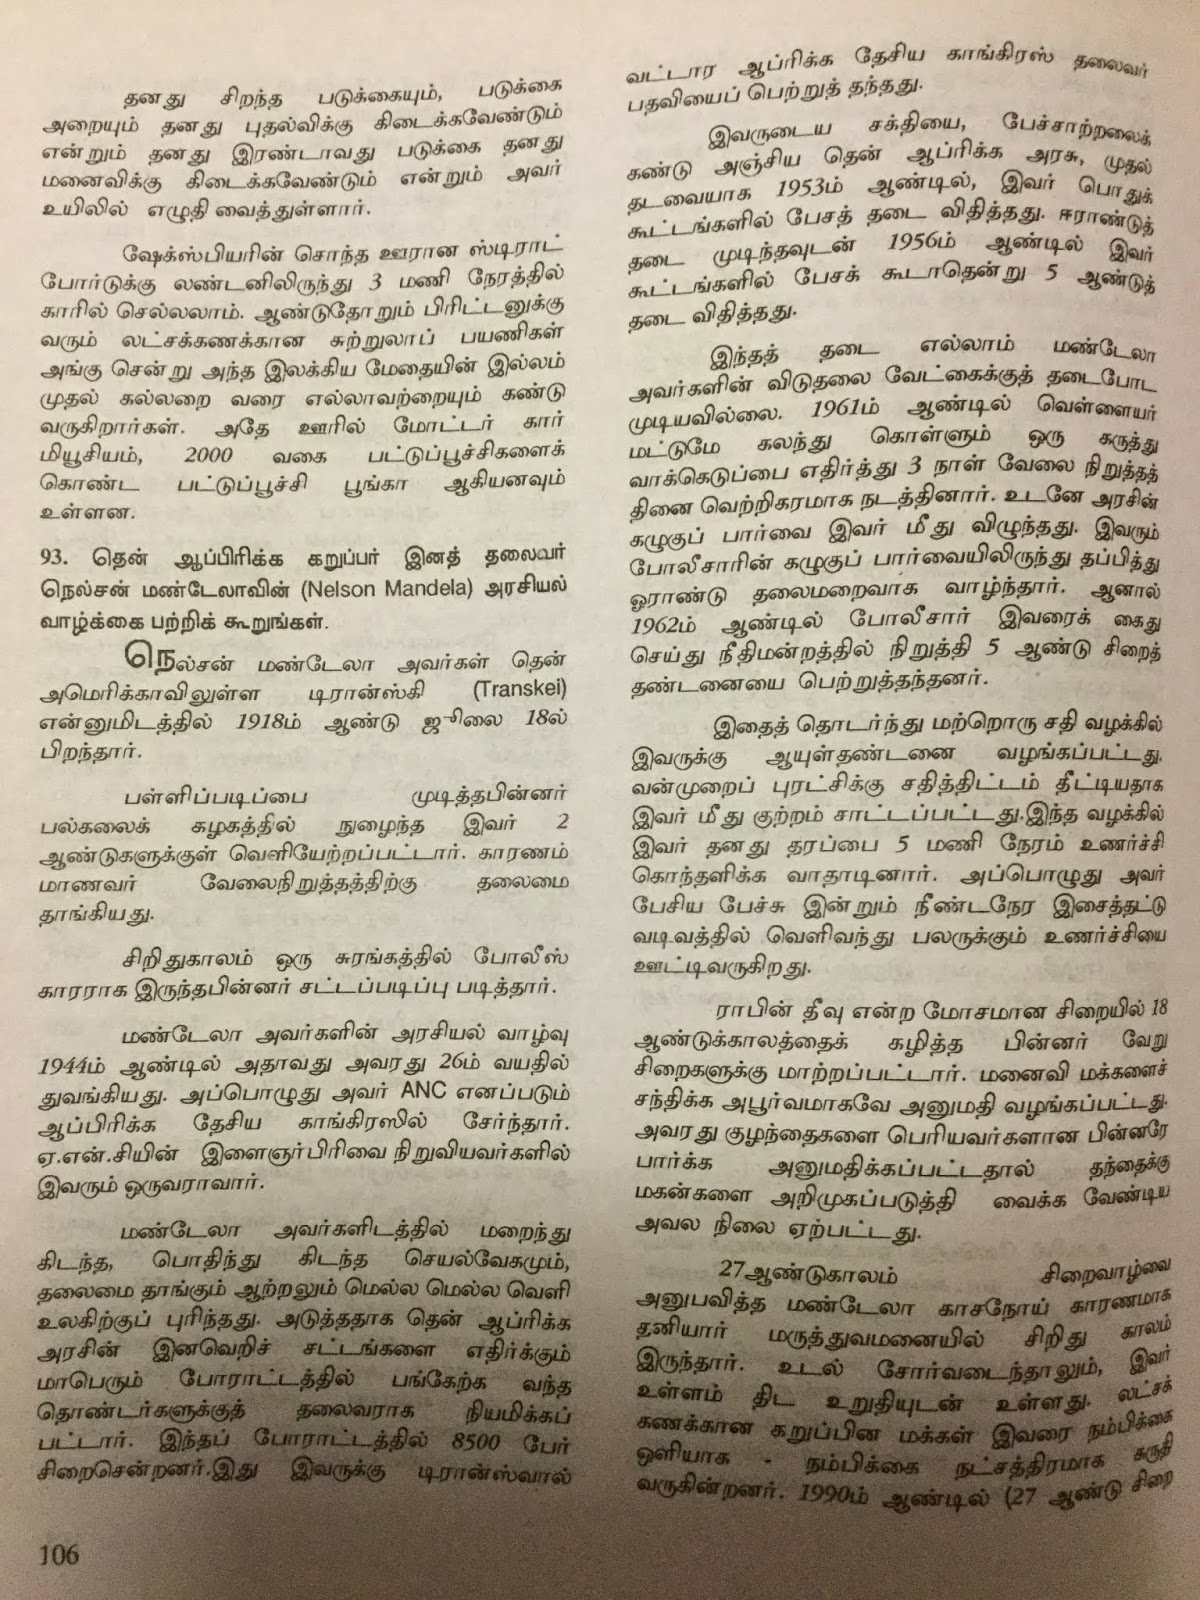 தனது சிறந்த படுக்கையும், படுக்கை
அறையும் தனது புதல்விக்கு கிடைக்கவேண்டும்
என்றும் தனது இரண்டாவது படுக்கை தனது
மனைவிக்கு கிடைக்கவேண்டும் என்றும் அவர்
உயிலில் எழுதி வைத்துள்ளார்.
ஷேக்ஸ்பியரின் சொந்த ஊரான ஸ்டிராட்
போர்டுக்கு லண்டனிலிருந்து 3 மணி நேரத்தில்
காரில் செல்லலாம். ஆண்டுதோறும் பிரிட்டனுக்கு
வரும் லட்சக்கணக்கான சுற்றுலாப் பயணிகள்
அங்கு சென்று அந்த இலக்கிய மேதையின் இல்லம்
முதல் கல்லறை வரை எல்லாவற்றையும் கண்டு
வருகிறார்கள். அதே ஊரில் மோட்டர் கார்
மியூசியம், 2000 வகை பட்டுப்பூச்சிகளைக்
கொண்ட பட்டுப்பூச்சி பூங்கா ஆகியனவும்
உள்ளன.
93. தென் ஆப்பிரிக்க கறுப்பர் இனத் தலைவர்
நெல்சன் மண்டேலாவின் (Nelson Mandela) அரசியல்
வாழ்க்கை பற்றிக் கூறுங்கள்.
நெல்சன் மண்டேலா அவர்கள் தென்
அமெரிக்காவிலுள்ள டிரான்ஸ்கி (Transkei)
என்னுமிடத்தில் 1918ம் ஆண்டு ஜுலை 18ல்
பிறந்தார்.
பள்ளிப்படிப்பை முடித்தபின்னர்
பல்கலைக் கழகத்தில் நுழைந்த இவர் 2
ஆண்டுகளுக்குள் வெளியேற்றப்பட்டார். காரணம்
மாணவர் வேலைநிறுத்தத்திற்கு தலைமை
தாங்கியது.
சிறிதுகாலம் ஒரு சுரங்கத்தில் போலீஸ்
காரராக இருந்தபின்னர் சட்டப்படிப்பு படித்தார்.
மண்டேலா அவர்களின் அரசியல் வாழ்வு
1944ம் ஆண்டில் அதாவது அவரது 26ம் வயதில்
துவங்கியது. அப்பொழுது அவர் ANC எனப்படும்
ஆப்பிரிக்க தேசிய காங்கிரஸில் சேர்ந்தார்.
ஏ.என்.சியின் இளைஞர்பிரிவை நிறுவியவர்களில்
இவரும் ஒருவராவார்.
மண்டேலா அவர்களிடத்தில் மறைந்து
கிடந்த, பொதிந்து கிடந்த செயல்வேகமும்,
தலைமை தாங்கும் ஆற்றலும் மெல்ல மெல்ல வெளி
உலகிற்குப் புரிந்தது. அடுத்ததாக தென் ஆப்ரிக்க
அரசின் இனவெறிச் சட்டங்களை எதிர்க்கும்
மாபெரும் போராட்டத்தில் பங்கேற்க வந்த
தொண்டர்களுக்குத் தலைவராக நியமிக்கப்
பட்டார். இந்தப் போராட்டத்தில் 8500 பேர்
சிறைசென்றனர்.இது இவருக்கு டிரான்ஸ்வால்
106
வட்டார ஆப்ரிக்க தேசிய காங்கிரஸ் தலைவர்
பதவியைப் பெற்றுத் தந்தது.
இவருடைய சக்தியை, பேச்சாற்றலைக்
கண்டு அஞ்சிய தென் ஆப்ரிக்க அரசு, முதல்
தடவையாக 1953ம் ஆண்டில், இவர் பொதுக்
கூட்டங்களில் பேசத் தடை விதித்தது. ஈராண்டுத்
தடை முடிந்தவுடன் 1956ம் ஆண்டில் இவர்
கூட்டங்களில் பேசக் கூடாதென்று 5 ஆண்டுத்
தடை விதித்தது.
இந்தத் தடை எல்லாம் மண்டேலா
அவர்களின் விடுதலை வேட்கைக்குத் தடைபோட
முடியவில்லை. 1961ம் ஆண்டில் வெள்ளையர்
மட்டுமே கலந்து கொள்ளும் ஒரு கருத்து
வாக்கெடுப்பை எதிர்த்து 3 நாள் வேலை நிறுத்தத்
தினை வெற்றிகரமாக நடத்தினார். உடனே அரசின்
கழுகுப் பார்வை இவர் மீது விழுந்தது. இவரும்
போலீசாரின் கழுகுப் பார்வையிலிருந்து தப்பித்து
ஓராண்டு தலைமறைவாக வாழ்ந்தார். ஆனால்
1962ம் ஆண்டில் போலீசார் இவரைக் கைது
செய்து நீதிமன்றத்தில் நிறுத்தி 5 ஆண்டு சிறைத்
தண்டனையை பெற்றுத்தந்தனர்.
இதைத் தொடர்ந்து மற்றொரு சதி வழக்கில்
இவருக்கு ஆயுள்தண்டனை வழங்கப்பட்டது.
வன்முறைப் புரட்சிக்கு சதித்திட்டம் தீட்டியதாக
இவர் மீது குற்றம் சாட்டப்பட்டது.இந்த வழக்கில்
இவர் தனது தரப்பை 5 மணி நேரம் உணர்ச்சி
கொந்தளிக்க வாதாடினார். அப்பொழுது அவர்
பேசிய பேச்சு இன்றும் நீண்டநேர இசைத்தட்டு
வடிவத்தில் வெளிவந்து பலருக்கும் உணர்ச்சியை
ஊட்டிவருகிறது.
ராபின் தீவு என்ற மோசமான சிறையில் 18
ஆண்டுக்காலத்தைக் கழித்த பின்னர் வேறு
சிறைகளுக்கு மாற்றப்பட்டார். மனைவி மக்களைச்
சந்திக்க அபூர்வமாகவே அனுமதி வழங்கப்பட்டது.
அவரது குழந்தைகளை பெரியவர்களான பின்னரே
பார்க்க அனுமதிக்கப்பட்டதால் தந்தைக்கு
மகன்களை அறிமுகப்படுத்தி வைக்க வேண்டிய
அவல நிலை ஏற்பட்டது.
27ஆண்டுகாலம் சிறைவாழ்வை
அனுபவித்த மண்டேலா காசநோய் காரணமாக
தனியார் மருத்துவமனையில் சிறிது காலம்
இருந்தார். உடல் சோர்வடைந்தாலும், இவர்
உள்ளம் திட உறுதியுடன் உள்ளது. லட்சக்
கணக்கான கறுப்பின மக்கள் இவரை நம்பிக்கை
ஒளியாக - நம்பிக்கை நட்சத்திரமாக கருதி
வருகின்றனர். 1990ம் ஆண்டில் (27 ஆண்டு சிறை